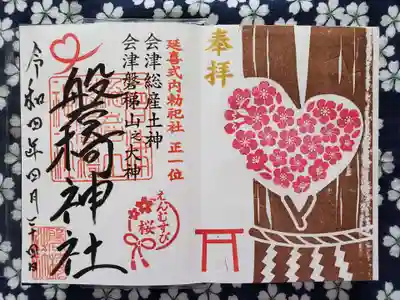 奉拝
延喜式内勅祀社 正一位
会津総産土神
会津磐梯山之大神
えんむすび
桜
磐椅神社
令和四年四月二十四日